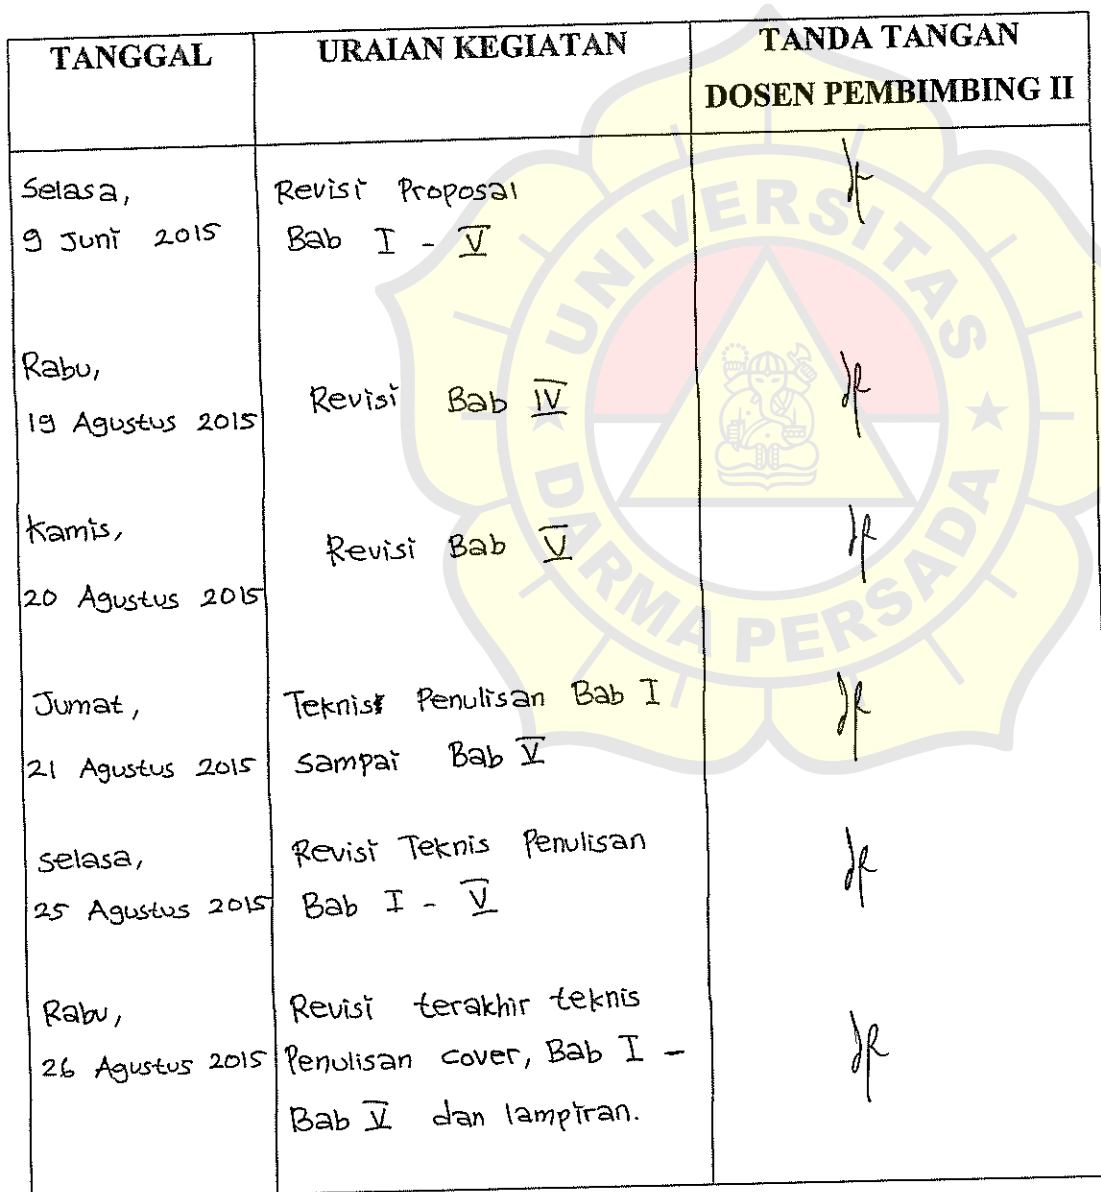 TANGGAL
URAIAN KEGIATAN
TANDA TANGAN
DOSEN PEMBIMBING II
Selasa,
9 Juni 2015
Revisi Proposal
Bab I - V
Rabu,
19 Agustus 2015
Revisi Bab IV
Kamis,
20 Agustus 2015
Revisi Bab V
Jumat,
21 Agustus 2015
Teknis Penulisan Bab I
sampai Bab V
Selasa,
25 Agustus 2015
Revisi Teknis Penulisan
Bab I - V
Rabu,
26 Agustus 2015
Revisi terakhir teknis
Penulisan cover, Bab I -
Bab V dan lampiran.
UNIVERSITAS
DARMA PERSADA